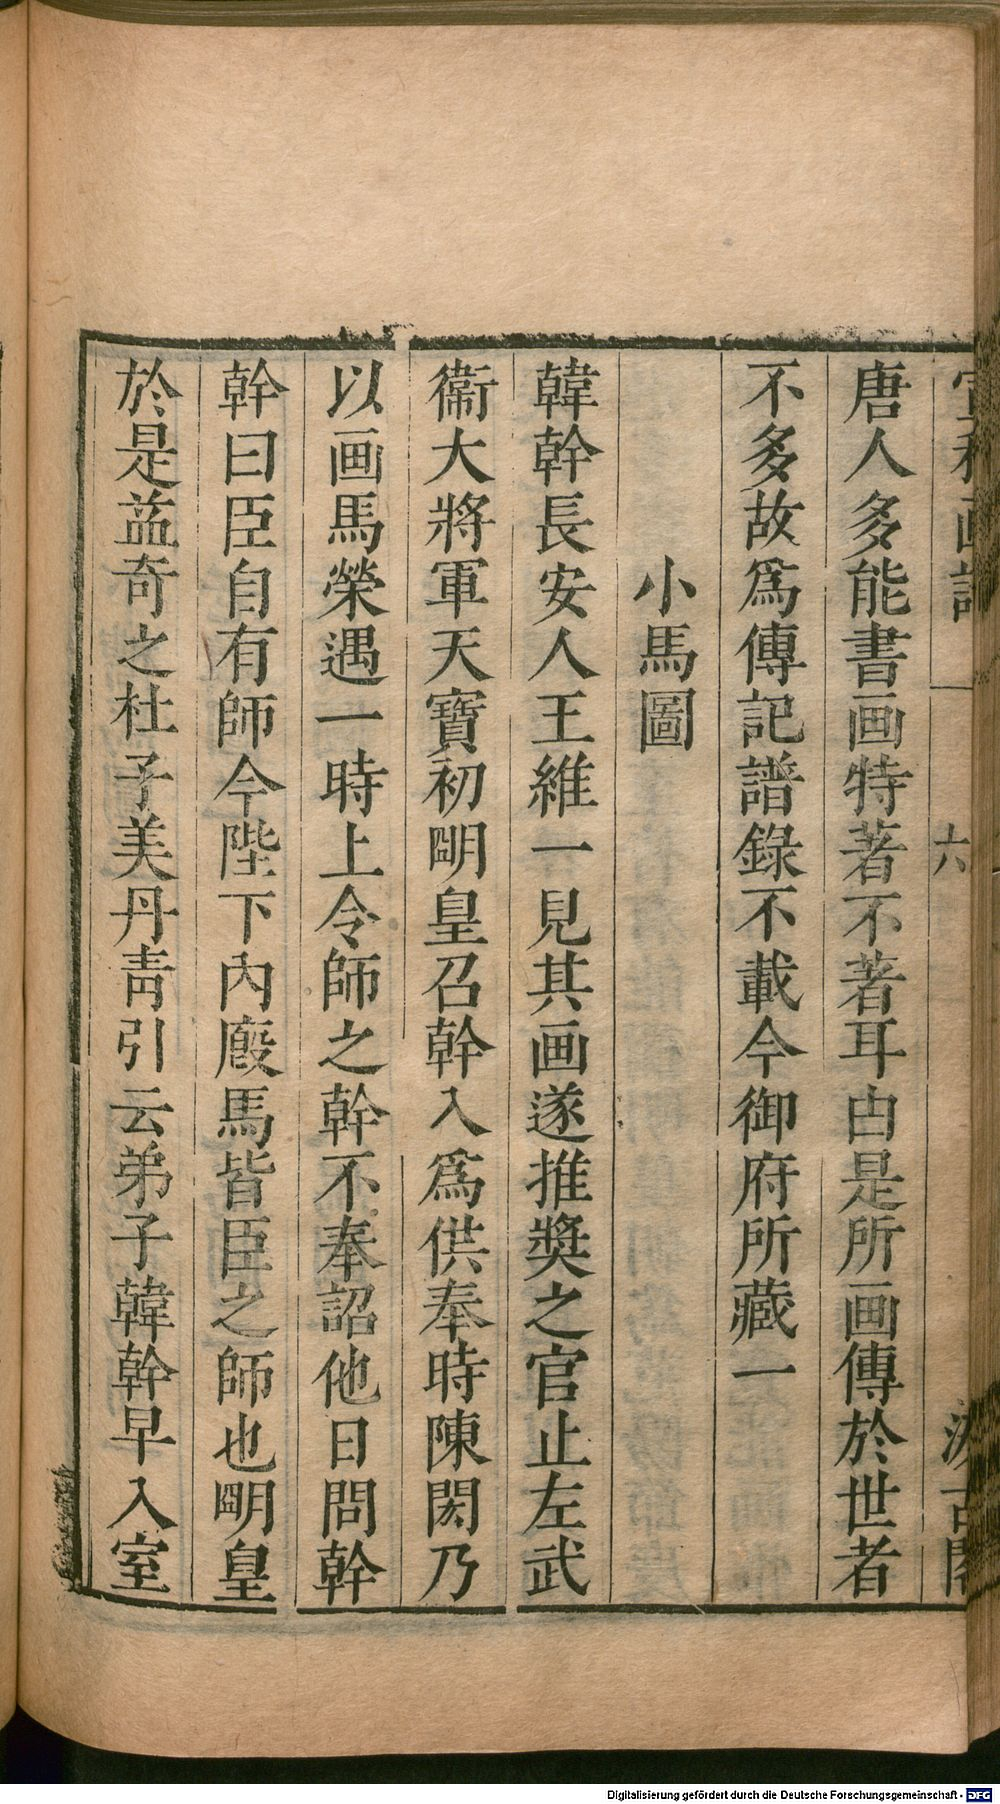 宣和画譜 六 汲古閣
唐人多能書画特著不著耳由是所画傳於世者
不多故爲傳記譜錄不載今御府所藏一
小馬圖
韓幹長安人王維一見其画遂推奬之官止左武
衞大將軍天寶初朙皇召幹入爲供奉時陳閎乃
以画馬榮遇一時上令師之幹不奉詔他日問幹
幹曰臣自有師今陛下內廏馬皆臣之師也朙皇
於是益奇之杜子美丹靑引云弟子韓幹早入室
Digitalisierung gefördert durch die Deutsche Forschungsgemeinschaft - DFG